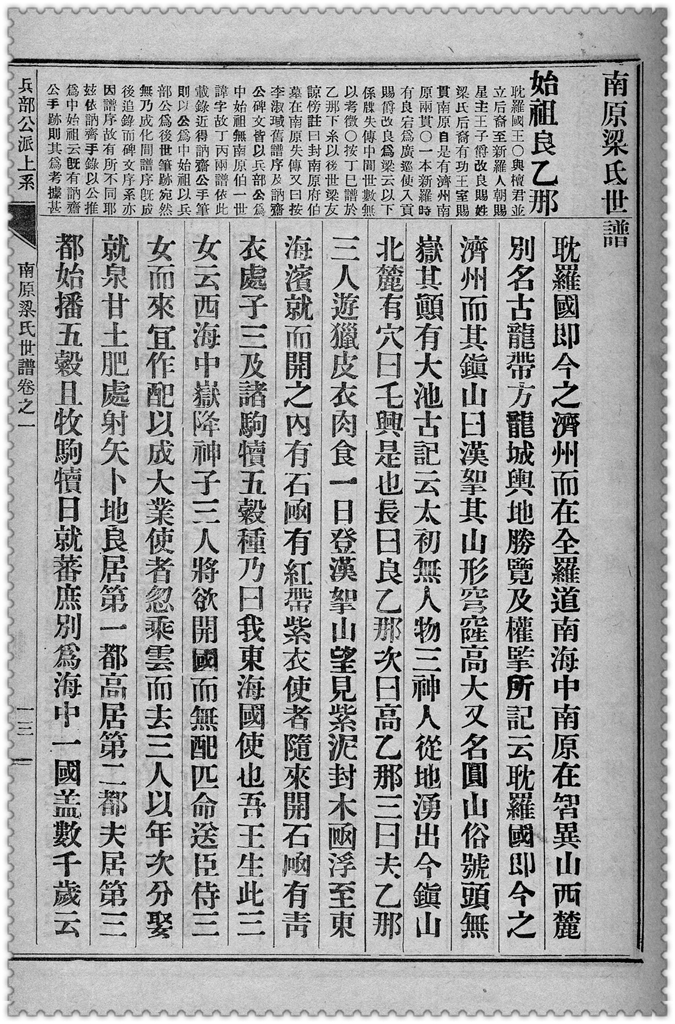 南原梁氏世譜
始祖良乙那
耽羅國王〇與檀君並
立后裔至新羅人朝賜
星主王子爵改良賜姓
梁氏后裔有功王室賜
貫南原自是有濟州南
原兩貫〇一本新羅時
有良宕爲廣巡使入貢
賜爵改良爲梁云以下
係牒失傳中間世數無
以考徵〇按丁巳譜於
乙那下系以後世梁友
諒傍註曰封南原府伯
墓在南原失傳又曰按
李淑瑊舊譜序及訥齋
公碑文皆以兵部公爲
中始祖無南原伯一世
諱字故丁丙兩譜依此
載錄近得訥齋公手筆
則以公爲中始祖以兵
部公爲後世筆跡宛然
無乃成化間譜序旣成
後追錄而碑文序系亦
因譜序故有所不同耶
玆依訥齋手錄以公推
爲中始祖云旣有訥齋
公手跡則其爲考據甚
耽羅國即今之濟州而在全羅道南海中南原在智異山西麓
別名古龍帶方龍城輿地勝覽及權擥所記云耽羅國即今之
濟州而其鎭山曰漢拏其山形穹窿高大又名圓山俗號頭無
嶽其顚有大池古記云太初無人物三神人從地湧出今鎭山
北麓有穴曰毛興是也長曰良乙那次曰高乙那三曰夫乙那
三人遊獵皮衣肉食一日登漢拏山望見紫泥封木凾浮至東
海濱就而開之內有石凾有紅帶紫衣使者隨來開石凾有靑
衣處子三及諸駒犢五穀種乃曰我東海國使也吾王生此三
女云西海中嶽降神子三人將欲開國而無配匹命送臣侍三
女而來宜作配以成大業使者忽乘雲而去三人以年次分娶
就泉甘土肥處射矢卜地良居第一都高居第二都夫居第三
都始播五穀且牧駒犢日就蕃庶別爲海中一國盖數千歲云
兵部公派上系
南原梁氏世譜卷之一
一三